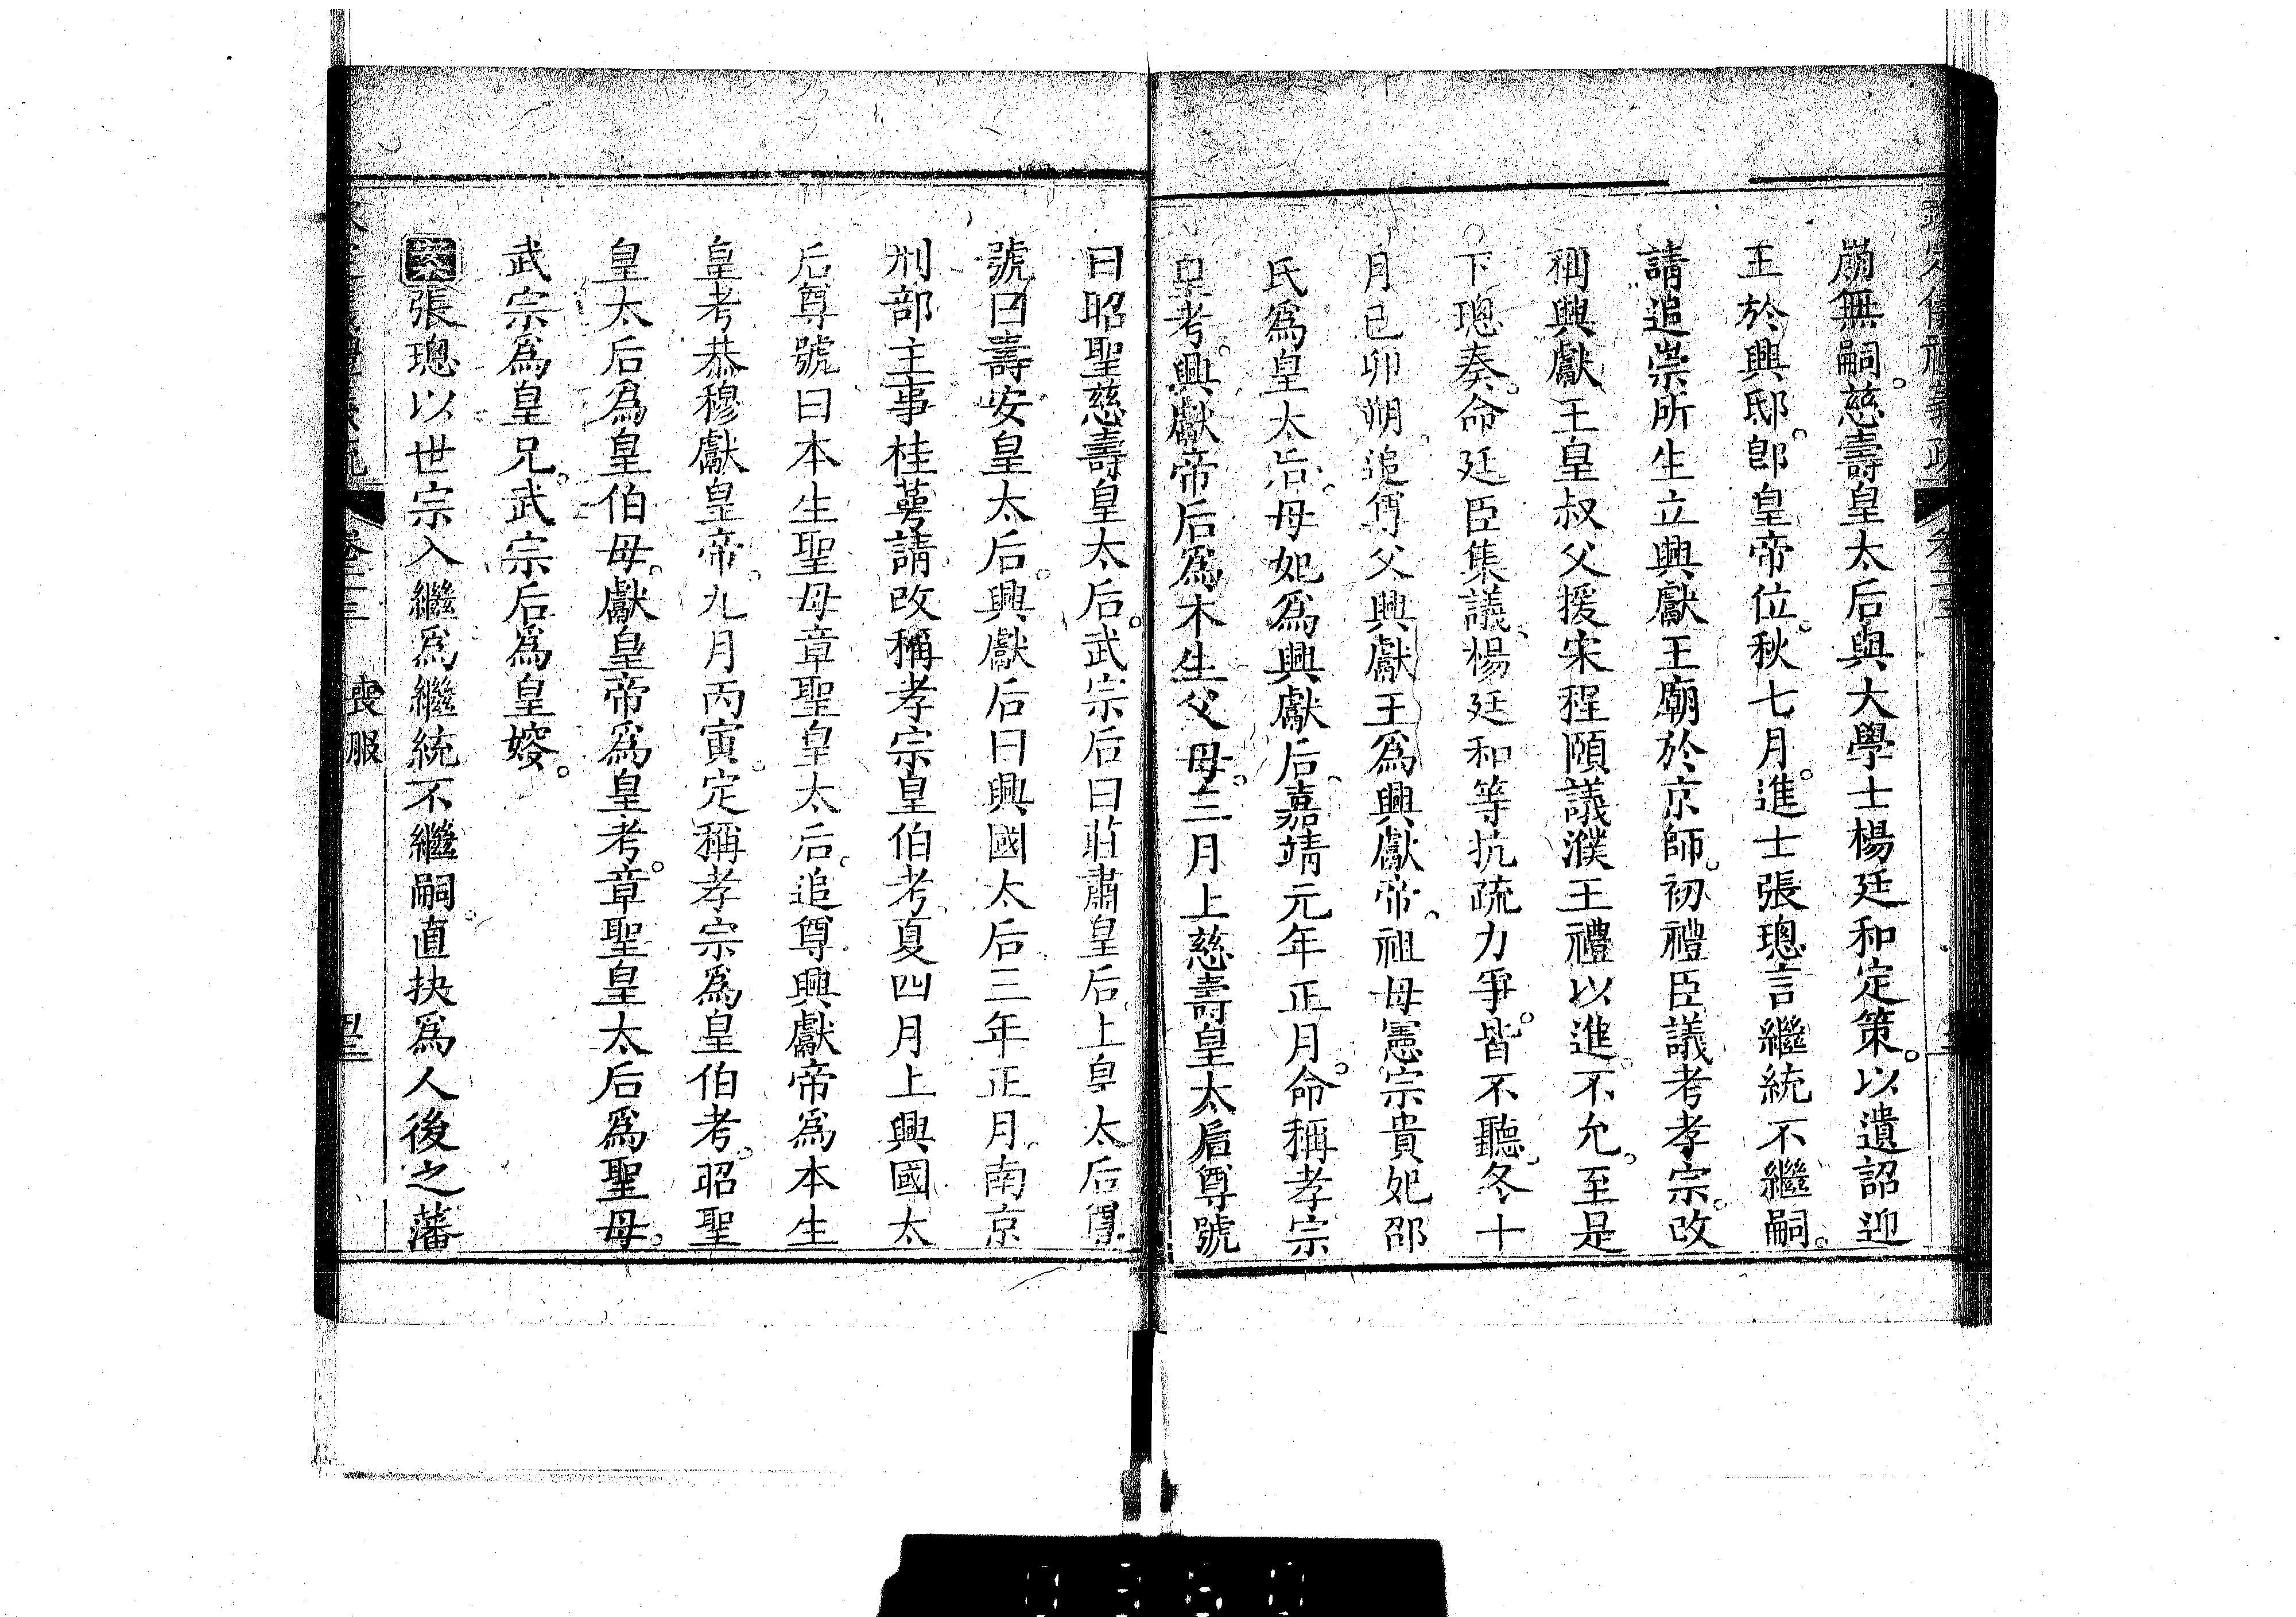 崩無嗣。慈壽皇太后與大學士楊廷和定策。以遺詔迎
王於興邸。卽皇帝位。秋七月。進士張璁言繼統不繼嗣。
請追崇所生立興獻王廟於京師。初禮臣議考孝宗。改
稱興獻王皇叔父援宋程頤議濮王禮以進。不允。至是
下璁奏。命廷臣集議。楊廷和等抗疏力爭。皆不聽。冬十
月己卯朔。追尊父興獻王爲興獻帝。祖母憲宗貴妃邵
氏爲皇太后。母妃爲興獻后。嘉靖元年正月。命稱孝宗
皇考。興獻帝后爲本生父母。三月上慈壽皇太后尊號
曰昭聖慈壽皇太后。武宗后曰莊肅皇后。上皇太后尊
號曰壽安皇太后。興獻后曰興國太后。三年正月。南京
刑部主事桂萼請改稱孝宗皇伯考。夏四月上興國太
后尊號曰本生聖母章聖皇太后。追尊興獻帝爲本生
皇考恭穆獻皇帝。九月丙寅。定稱孝宗爲皇伯考。昭聖
皇太后爲皇伯母。獻皇帝爲皇考。章聖皇太后爲聖母。
武宗爲皇兄。武宗后爲皇嫂。
案張璁以世宗入繼爲繼統不繼嗣。直抉爲人後之藩
喪服